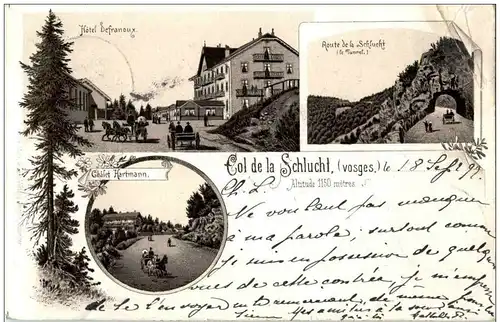 Hôtel Defranoux.
Route de la Schlucht
(le Tunnel.)
Châlet Hartmann.
Col de la Schlucht, (vosges.) le 18 Sept 97
Altitude 1150 mètres.
Ne voulant pas manquer
à ma parole, surtout comme
je suis en possession de quelques
vues de cette contrée, je m'empresse
de te l'envoyer en te remerciant, de même pour